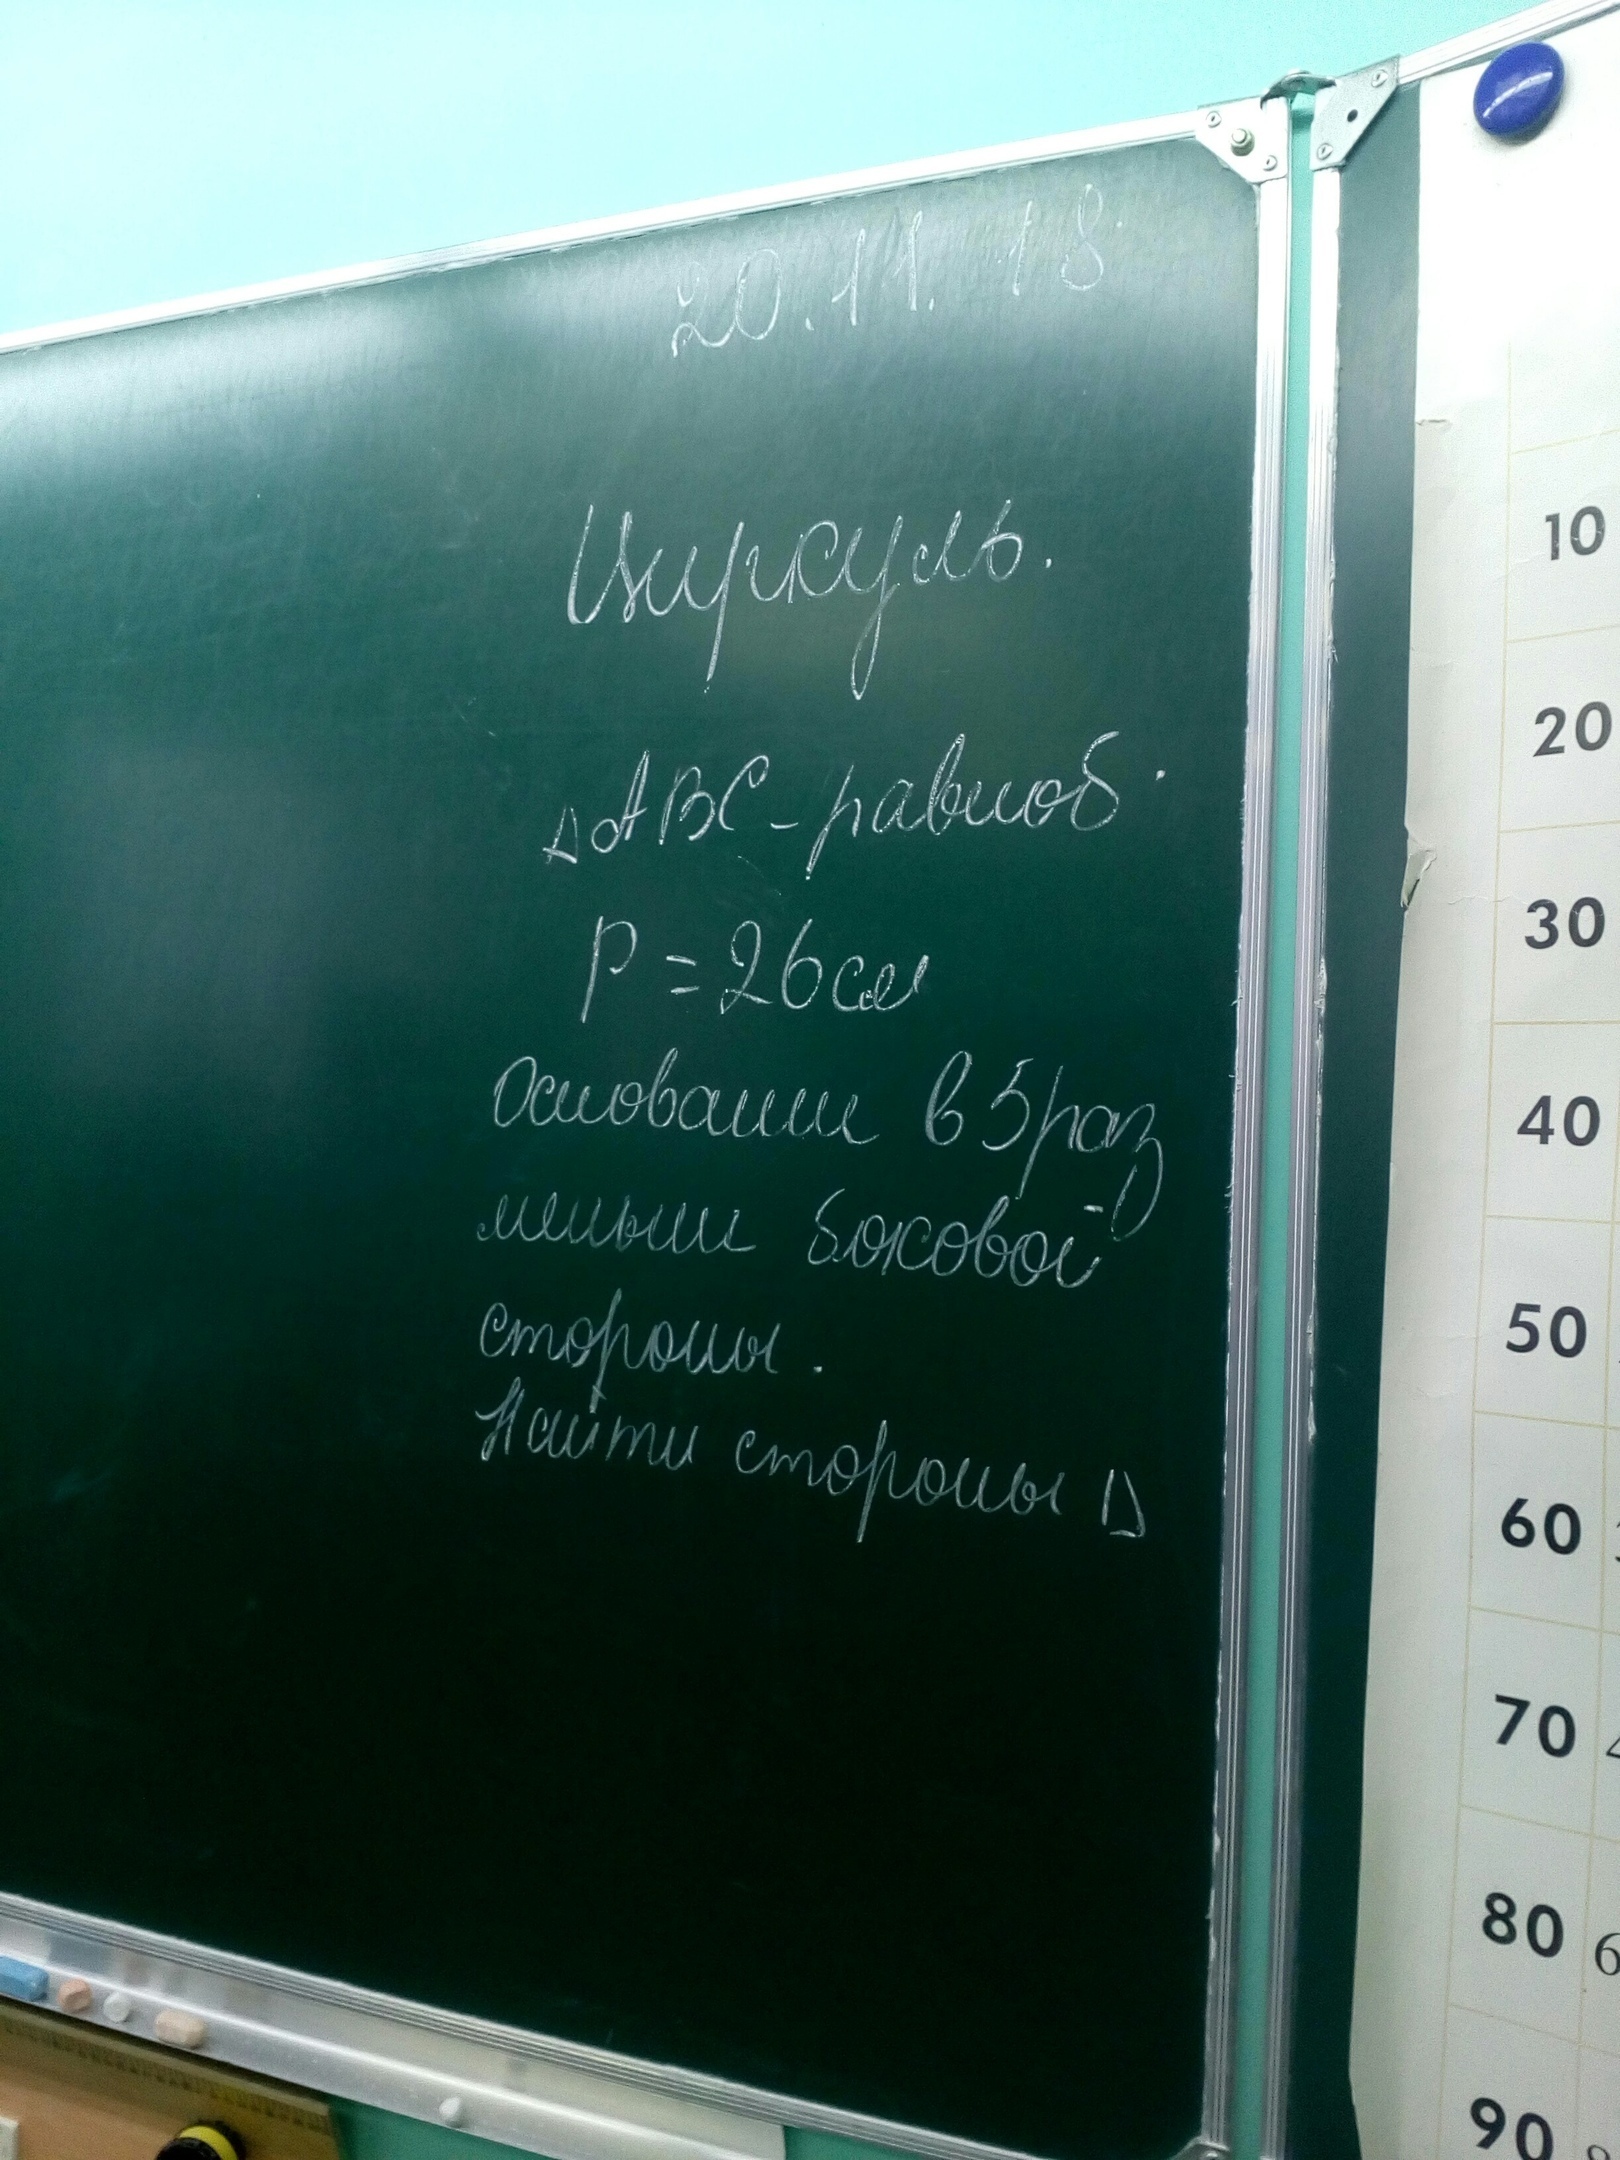 20.11.18.
Циркуль.
△ABC - равноб.
P = 26 см
Основание в 5 раз
меньше боковой
стороны.
Найти стороны △
10
20
30
40
50
60
70
80 6
90